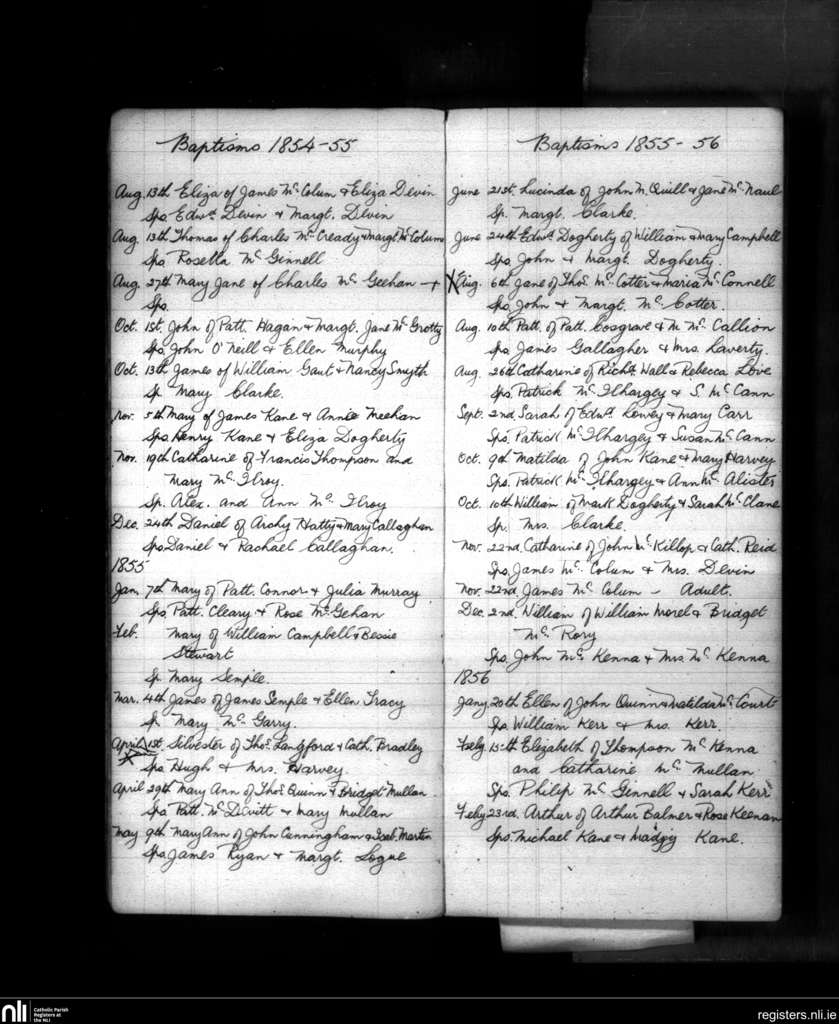 Baptisms 1854-55
Aug. 13th Eliza of James Mc Colum & Eliza Devin
Sps. Edwd. Devin & Margt. Devin
Aug. 13th Thomas of Charles Mc Cready & Margt. Mc Colum
Sps. Rosetta Mc Ginnell
Aug. 27th Mary Jane of Charles Mc Geehan - +
Sps.
Oct. 1st. John of Patt. Hagan & Margt. Jane Mc Grotty
Sps. John O'Neill & Ellen Murphy
Oct. 13th James of William Gaut & Nancy Smyth
Sp. Mary Clarke.
Nov. 5th Mary of James Kane & Annie Meehan
Sps. Henry Kane & Eliza Dogherty
Nov. 19th Catharine of Francis Thompson and
Mary Mc Ilroy.
Sp. Alex. and Ann Mc Ilroy
Dec. 24th Daniel of Archy Hatty & Mary Callaghan
Sps. Daniel & Rachael Callaghan.
1855
Jan. 7th Mary of Patt. Connor & Julia Murray
Sps. Patt. Cleary & Rose Mc Gehan
Feb. Mary of William Campbell & Bessie
Stewart
Sp. Mary Semple.
Mar. 4th James of James Semple & Ellen Tracy
Sp. Mary Mc Garry.
April 1st. Silvester of Thos. Langford & Cath. Bradley
Sps. Hugh & Mrs. Harvey.
April 29th Mary Ann of Thos. Quinn & Bridget Mullan
Sps. Patt. Mc Devitt & Mary Mullan
May 9th Mary Ann of John Cunningham & Isab. Martin
Sps. James Ryan & Margt. Logue
Baptisms 1855-56
June 21st. Lucinda of John M. Quill & Jane Mc Naul
Sp. Margt. Clarke.
June 24th Edwd. Dogherty of William & Mary Campbell
Sps. John & Margt. Dogherty.
X Aug. 6th Jane of Thos. Mc Cotter & Maria Mc Connell
Sps. John & Margt. Mc Cotter.
Aug. 10th Patt. of Patt. Cosgrave & M. Mc Callion
Sps. James Gallagher & Mrs. Laverty.
Aug. 26th Catharine of Richd. Wall & Rebecca Love
Sps. Patrick Mc Ilhargey & S. Mc Cann
Sept. 2nd. Sarah of Edwd. Lewey & Mary Carr
Sps. Patrick Mc Ilhargey & Susan Mc Cann
Oct. 9th Matilda of John Kane & Mary Harvey
Sps. Patrick Mc Ilhargey & Ann Mc Alister
Oct. 10th William of Mark Dogherty & Sarah Mc Clane
Sp. Mrs. Clarke.
Nov. 22nd. Catharine of John Mc Killop & Cath. Reid
Sps. James Mc Colum & Mrs. Devin
Nov. 22nd. James Mc Colum - Adult.
Dec. 2nd. William of William Morel & Bridget
Mc Rory
Sps. John Mc Kenna & Mrs. Mc Kenna
1856
Jany. 20th Ellen of John Quinn & Matilda Mc Court
Sps. William Kerr & Mrs. Kerr.
Feby. 15th Elizabeth of Thompson Mc Kenna
and Catharine Mc Mullan
Sps. Philip Mc Ginnell & Sarah Kerr
Feby 23rd. Arthur of Arthur Balmer & Rose Keenan
Sps. Michael Kane & Madgy Kane.
nli
Catholic Parish
Registers at
the NLI
registers.nli.ie